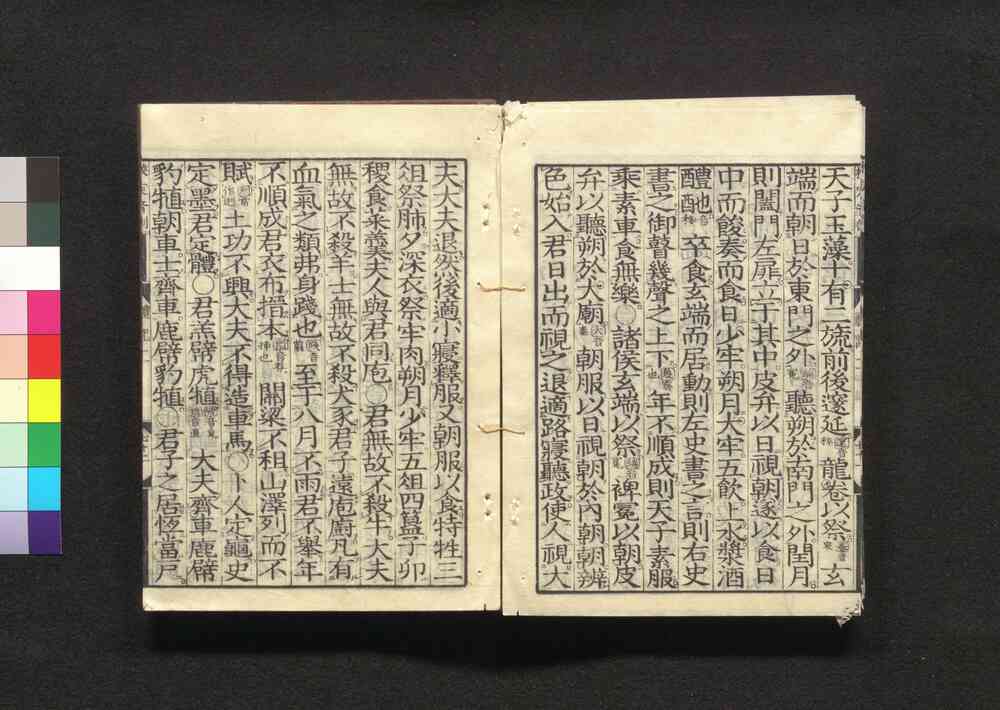 天子玉藻十有二旒前後邃延龍卷以祭玄
端而朝日於東門之外聽朔於南門之外閏月
則闔門左扉立于其中皮弁以日視朝遂以食日
中而餕奏而食日少牢朔月大牢五飮上水漿酒
醴酏卒食玄端而居動則左史書之言則右史
書之御瞽幾聲之上下年不順成則天子素服
乘素車食無樂〇諸侯玄端以祭裨冕以朝皮
弁以聽朔於大廟朝服以日視朝於內朝朝辨
色始入君日出而視之退適路寢聽政使人視大
夫大夫退然後適小寢釋服又朝服以食特牲三
俎祭肺夕深衣祭牢肉朔月少牢五俎四簋子卯
稷食菜羹夫人與君同庖〇君無故不殺牛大夫
無故不殺羊士無故不殺犬豕君子遠庖廚凡有
血氣之類弗身踐也至于八月不雨君不舉年
不順成君衣布搢本關梁不租山澤列而不
賦土功不興大夫不得造車馬〇卜人定龜史
定墨君定體〇君羔幦虎犆大夫齊車鹿幦
豹犆朝車士齊車鹿幦豹犆〇君子之居恆當戶